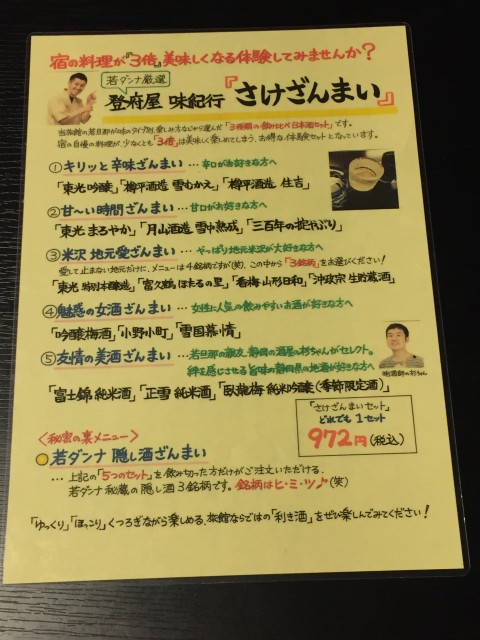 宿の料理が『3倍』美味しくなる体験してみませんか?
若ダンナ厳選
登府屋 味紀行『さけざんまい』
当旅館の若旦那が味のタイプ別、楽しみ方などから選んだ「3種類の飲み比べ日本酒セット」です。
宿の自慢の料理が、少なくとも「3倍」は美味しく楽しめてしまう、お得な体験セットとなっています。
①キリッと辛味ざんまい … 辛口がお好きな方へ
「東光 吟醸」「樽平酒造 雪むかえ」「樽平酒造 住吉」
②甘〜い時間ざんまい … 甘口がお好きな方へ
「東光 まろやか」「月山酒造 雪中熟成」「三百年の掟やぶり」
③米沢 地元愛ざんまい … やっぱり地元米沢が大好きな方へ
愛して止まない地元だけに、メニューは4銘柄ですが(笑)、この中から「3銘柄」をお選びください!
「東光 特別本醸造」「富久鶴 ほたるの里」「香梅 山形日和」「沖政宗 生貯蔵酒」
④魅惑の女酒ざんまい … 女性に人気の飲みやすいお酒が好きな方へ
「吟醸梅酒」「小野小町」「雪国慕情」
⑤友情の美酒ざんまい … 若旦那の親友、静岡の酒屋の杉ちゃんがセレクト。
絆を感じさせる旨味の静岡県の地酒が好きな方へ
「富士錦 純米酒」「正雪 純米酒」「臥龍梅 純米吟醸(季節限定酒)」
利酒師の杉ちゃん
「さけざんまいセット」
どれでも1セット
972円(税込)
<秘密の裏メニュー>
若ダンナ 隠し酒ざんまい
… 上記の「5つのセット」を飲み切った方だけがご注文いただける、
若ダンナ秘蔵の隠し酒3銘柄です。銘柄はヒ・ミ・ツ♪(笑)
「ゆっくり」「ほっこり」くつろぎながら楽しめる、旅館ならではの「利き酒」をぜひ楽しんでみてください!